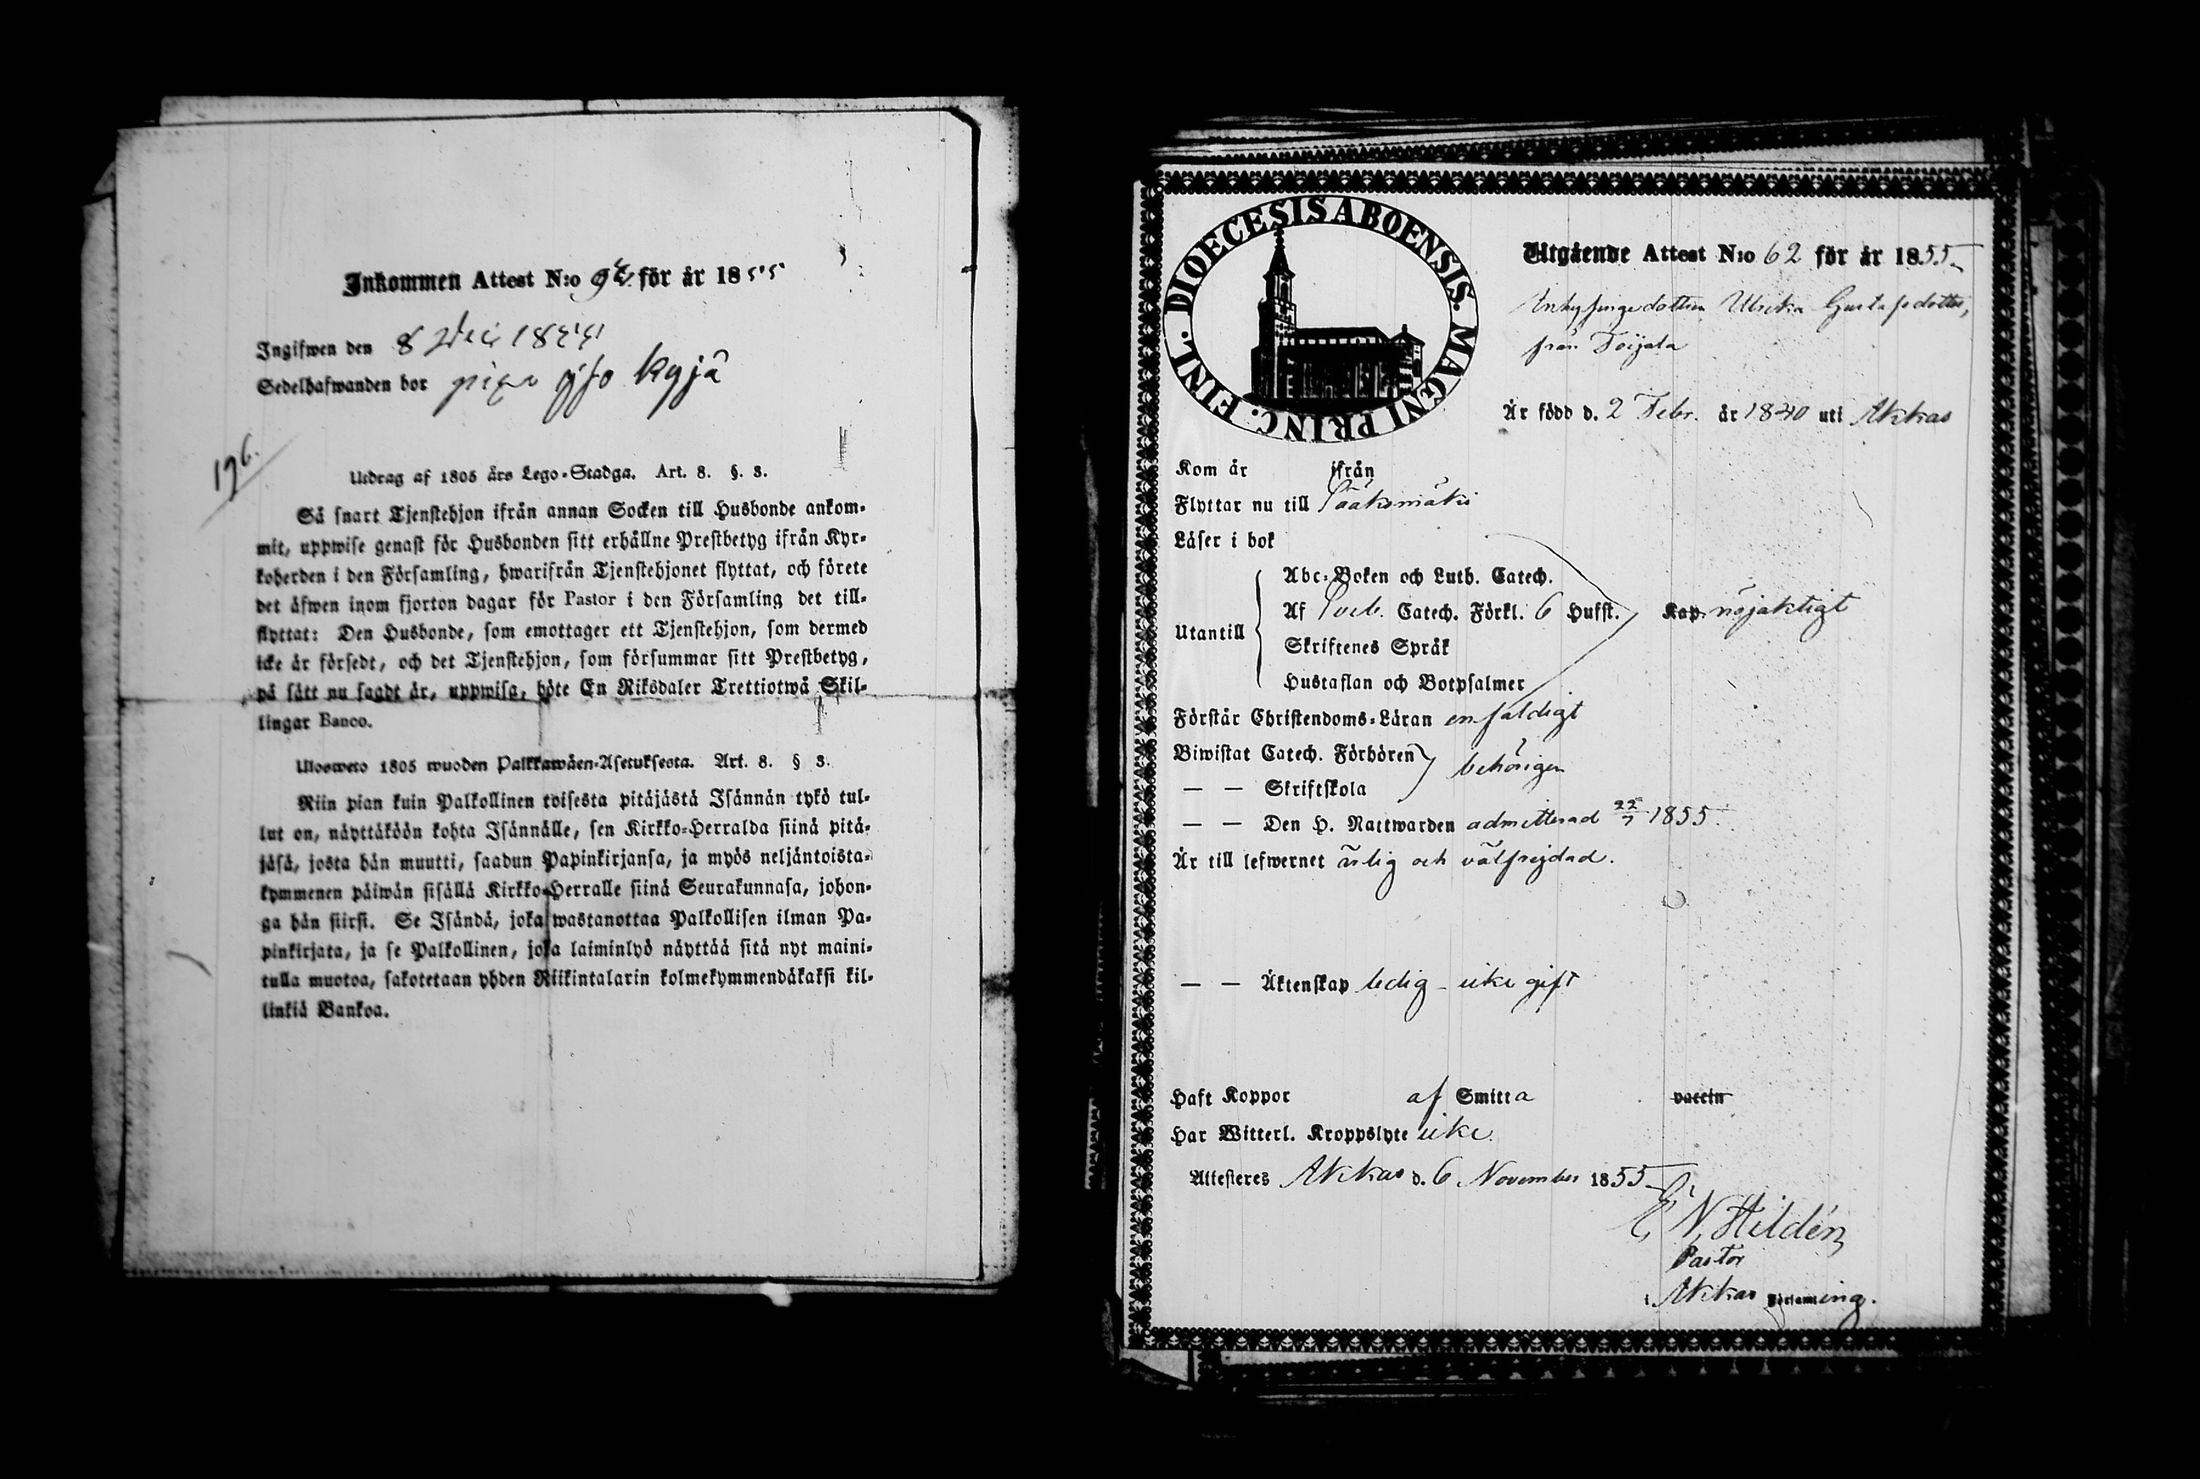 Inkommen Attest N:o för år 1855
Ingifwen den 8 Dec 1855
Sedelhafwanden bor
196.
Utdrag af 1805 års Lego-Stadga. Art. 8. §. 3.
Så snart Tjenstehjon ifrån annan Socken till Husbonde ankom-
mit, uppwise genast för Husbonden sitt erhållne Prestbetyg ifrån Kyr-
koherden i den Församling, hwarifrån Tjenstehjonet flyttat, och förete
det äfwen inom fjorton dagar för Pastor i den Församling det till-
flyttat: Den Husbonde, som emottager ett Tjenstehjon, som dermed
icke är försedt, och det Tjenstehjon, som försummar sitt Prestbetyg,
på sätt nu sagdt är, uppwisa, böte En Riksdaler Trettiotwå Skil-
lingar Banco.
Ulosweto 1805 wuoden Palkkawäen-Asetuksesta. Art. 8. § 3.
Niin pian kuin Palkollinen toisesta pitäjästä Isännän tykö tul-
lut on, näyttäköön kohta Isännälle, sen Kirkko-Herralda siinä pitä-
jäsä, josta hän muutti, saadun Papinkirjansa, ja myös neljäntoista-
kymmenen päiwän sisällä Kirkko-Herralle siinä Seurakunnasa, johon-
ga hän siirsi. Se Isändä, joka wastanottaa Palkollisen ilman Pa-
pinkirjata, ja se Palkollinen, joka laiminlyö näyttää sitä nyt maini-
tulla muotoa, sakotetaan yhden Riikintalarin kolmekymmendäkaksi kil-
linkiä Bankoa.
DIOECESIS ABOENSIS. MAGNI PRINC. FINL.
Utgående Attest N:o 62 för år 1855
Inhysingedottren Ulrika Gustafsdotter,
från Toijala
Är född d. 2 Febr. år 1840 uti Akkas
Kom år ifrån
Flyttar nu till Pääksmäki
Läser i bok
Abc-Boken och Luth. Catech.
Utantill Af Catech. Förkl. 6 Hufst. Kap. nöjaktigt
Skriftenes Språk
Hustaflan och Botpsalmer
Förstår Christendoms-Läran enfaldigt
Biwistat Catech. Förhören behörigen
— — Skriftskola
— — Den H. Nattwarden admitterad 22/7 1855.
Är till lefwernet ärlig och välfrejdad.
— — Äktenskap ledig - icke gift
Haft Koppor af Smitta vaccin
Har Witterl. Kroppslyte icke
Attesteres Akkas d. 6 November 1855
E. N. Hildén
Pastor
i Akkas Församling.